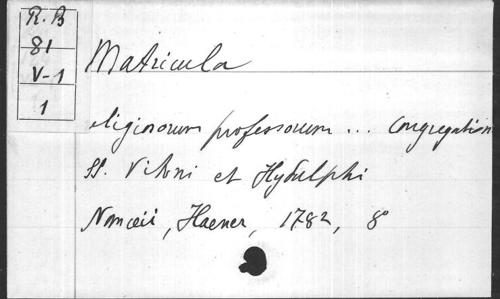 R.B
81
V-1
1
Matricula
eligiosorum professorum ... Congregation
SS. Vitoni et Hydulphi
Nanceii, Haener, 1782, 8°